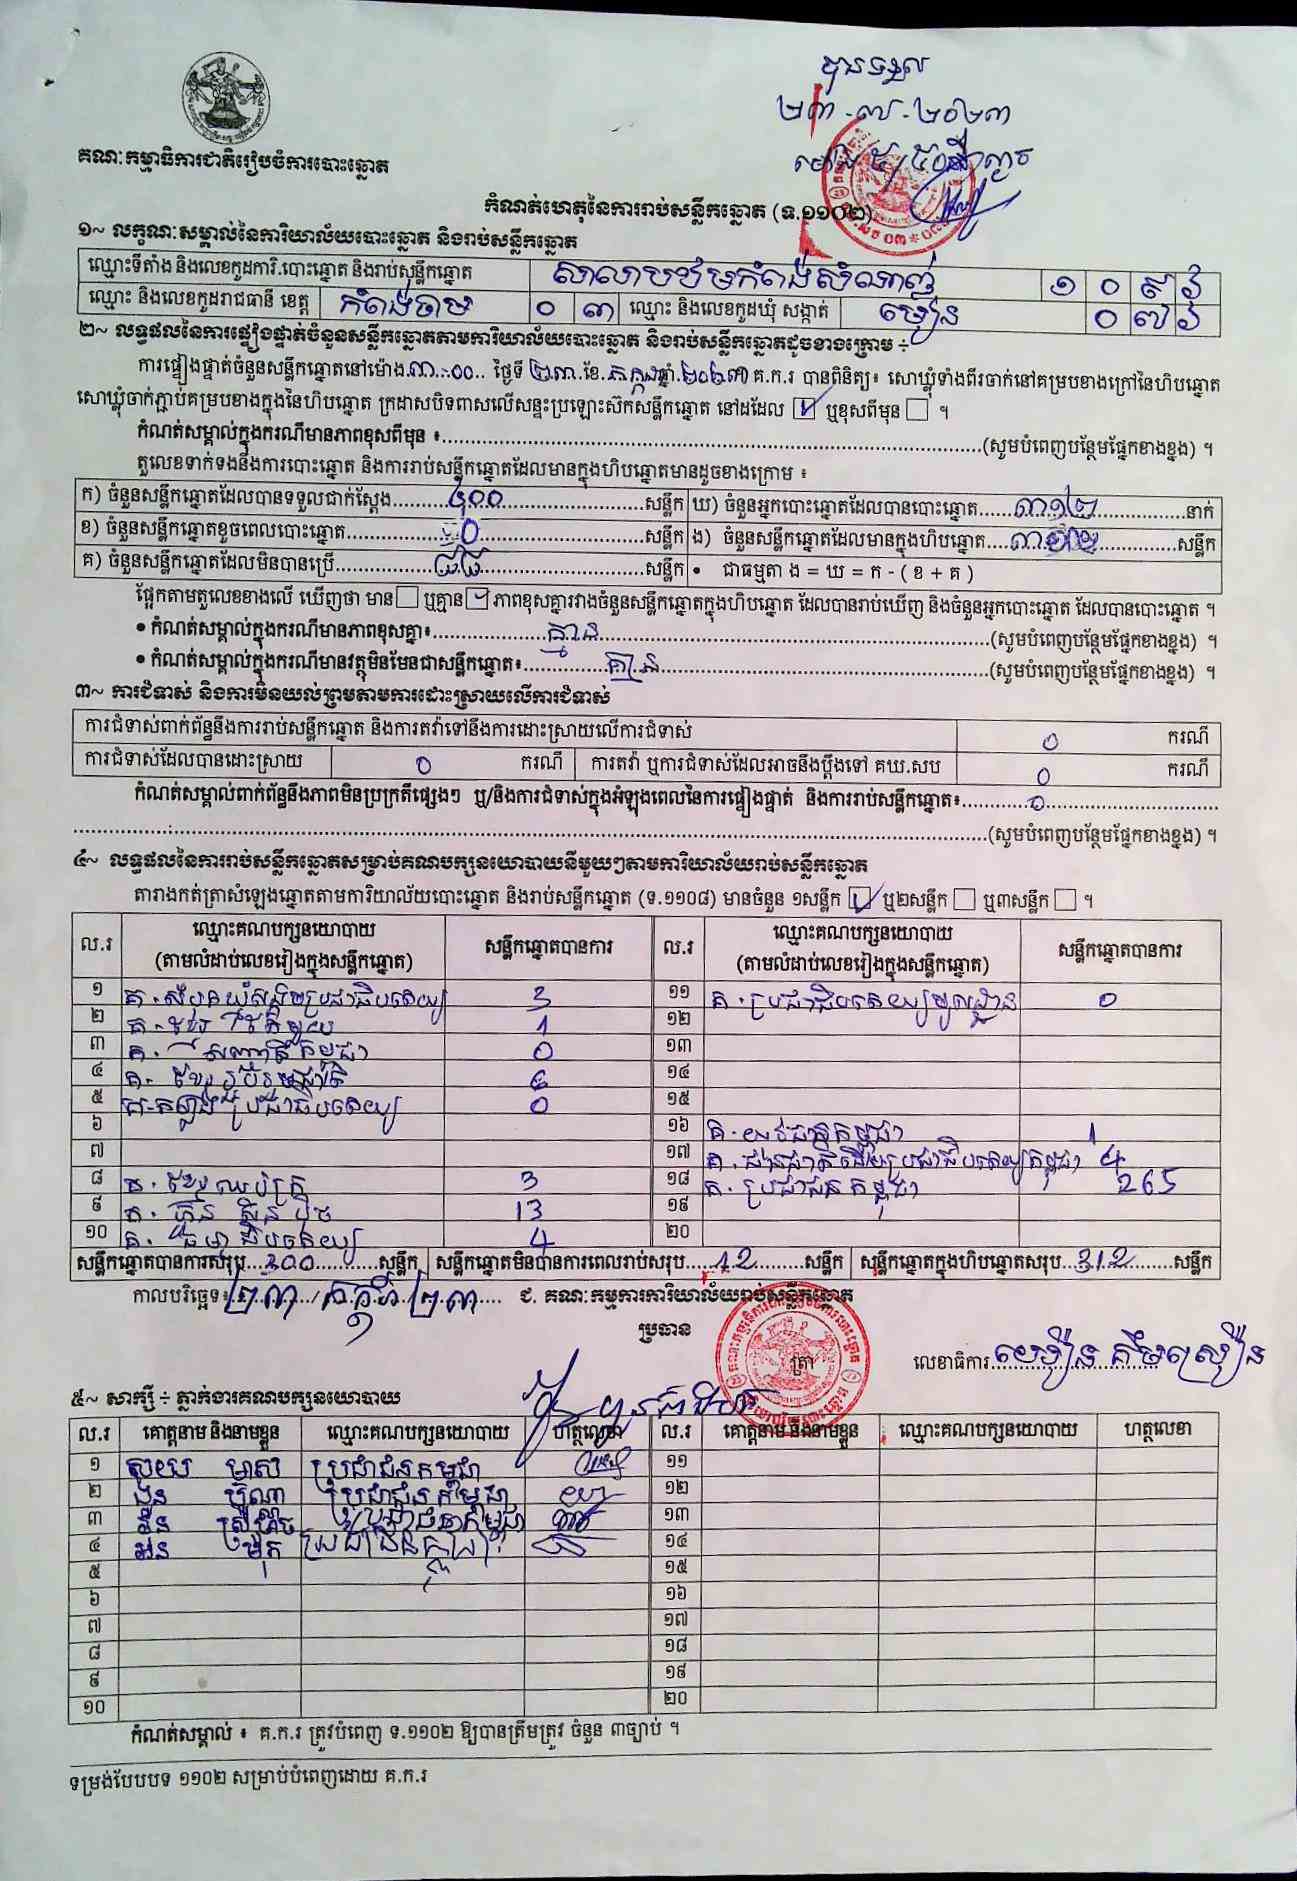 បានទទួល
២៣-៧-២០២៣
គណៈកម្មាធិការជាតិរៀបចំការបោះឆ្នោត
កំណត់ហេតុនៃការរាប់សន្លឹកឆ្នោត (ទ.១១០២)
១~ លក្ខណៈសម្គាល់នៃការិយាល័យបោះឆ្នោត និងរាប់សន្លឹកឆ្នោត
ឈ្មោះទីតាំង និងលេខកូដការិ.បោះឆ្នោត និងរាប់សន្លឹកឆ្នោត សាលាបឋមកំពង់សំណាញ់ ១ ០ ៩ ៦
ឈ្មោះ និងលេខកូដរាជធានី ខេត្ត កំពង់ចាម ០ ៣ ឈ្មោះ និងលេខកូដឃុំ សង្កាត់ មៀន ០ ៧ ៦
២~ លទ្ធផលនៃការផ្ទៀងផ្ទាត់ចំនួនសន្លឹកឆ្នោតតាមការិយាល័យបោះឆ្នោត និងរាប់សន្លឹកឆ្នោតដូចខាងក្រោម ÷
ការផ្ទៀងផ្ទាត់ចំនួនសន្លឹកឆ្នោតនៅម៉ោង.៣.:00.. ថ្ងៃទី ២៣.ខែ.កក្កដាឆ្នាំ.២០២៣ គ.ក.រ បានពិនិត្យ៖ សោឃ្លុំទាំងពីរចាក់នៅគម្របខាងក្រៅនៃហិបឆ្នោត
សោឃ្លុំចាក់ភ្ជាប់គម្របខាងក្នុងនៃហិបឆ្នោត ក្រដាសបិទពាសលើសន្ទះប្រឡោះស៊កសន្លឹកឆ្នោត នៅដដែល ☑ ឬខុសពីមុន ☐ ។
កំណត់សម្គាល់ក្នុងករណីមានភាពខុសពីមុន ៖..........(សូមបំពេញបន្ថែមផ្នែកខាងខ្នង) ។
តួលេខទាក់ទងនឹងការបោះឆ្នោត និងការរាប់សន្លឹកឆ្នោតដែលមានក្នុងហិបឆ្នោតមានដូចខាងក្រោម ៖
ក) ចំនួនសន្លឹកឆ្នោតដែលបានទទួលជាក់ស្តែង....៤០០....សន្លឹក ឃ) ចំនួនអ្នកបោះឆ្នោតដែលបានបោះឆ្នោត....៣១២....នាក់
ខ) ចំនួនសន្លឹកឆ្នោតខូចពេលបោះឆ្នោត....0....សន្លឹក ង) ចំនួនសន្លឹកឆ្នោតដែលមានក្នុងហិបឆ្នោត....៣១២....សន្លឹក
គ) ចំនួនសន្លឹកឆ្នោតដែលមិនបានប្រើ....៨៨....សន្លឹក • ជាធម្មតា ង = ឃ = ក - ( ខ + គ )
ផ្អែកតាមតួលេខខាងលើ ឃើញថា មាន ☐ ឬគ្មាន ☑ ភាពខុសគ្នារវាងចំនួនសន្លឹកឆ្នោតក្នុងហិបឆ្នោត ដែលបានរាប់ឃើញ និងចំនួនអ្នកបោះឆ្នោត ដែលបានបោះឆ្នោត ។
• កំណត់សម្គាល់ក្នុងករណីមានភាពខុសគ្នា៖....គ្មាន....(សូមបំពេញបន្ថែមផ្នែកខាងខ្នង) ។
• កំណត់សម្គាល់ក្នុងករណីមានវត្ថុមិនមែនជាសន្លឹកឆ្នោត៖....គ្មាន....(សូមបំពេញបន្ថែមផ្នែកខាងខ្នង) ។
៣~ ការជំទាស់ និងការមិនយល់ព្រមតាមការដោះស្រាយលើការជំទាស់
ការជំទាស់ពាក់ព័ន្ធនឹងការរាប់សន្លឹកឆ្នោត និងការតវ៉ាទៅនឹងការដោះស្រាយលើការជំទាស់ 0 ករណី
ការជំទាស់ដែលបានដោះស្រាយ 0 ករណី ការតវ៉ា ឬការជំទាស់ដែលអាចនឹងប្តឹងទៅ គឃ.សប 0 ករណី
កំណត់សម្គាល់ពាក់ព័ន្ធនឹងភាពមិនប្រក្រតីផ្សេងៗ ឬ/និងការជំទាស់ក្នុងអំឡុងពេលនៃការផ្ទៀងផ្ទាត់ និងការរាប់សន្លឹកឆ្នោត៖....0....
..........(សូមបំពេញបន្ថែមផ្នែកខាងខ្នង) ។
៤~ លទ្ធផលនៃការរាប់សន្លឹកឆ្នោតសម្រាប់គណបក្សនយោបាយនីមួយៗតាមការិយាល័យរាប់សន្លឹកឆ្នោត
តារាងកត់ត្រាសំឡេងឆ្នោតតាមការិយាល័យបោះឆ្នោត និងរាប់សន្លឹកឆ្នោត (ទ.១១០៨) មានចំនួន ១សន្លឹក ☑ ឬ២សន្លឹក ☐ ឬ៣សន្លឹក ☐ ។
ល.រ ឈ្មោះគណបក្សនយោបាយ (តាមលំដាប់លេខរៀងក្នុងសន្លឹកឆ្នោត) សន្លឹកឆ្នោតបានការ ល.រ ឈ្មោះគណបក្សនយោបាយ (តាមលំដាប់លេខរៀងក្នុងសន្លឹកឆ្នោត) សន្លឹកឆ្នោតបានការ
១ គ.សំបុកឃ្មុំសង្គមប្រជាធិបតេយ្យ 3 ១១ គ.ប្រជាធិបតេយ្យមូលដ្ឋាន 0
២ គ.ខ្មែរតែមួយ 1 ១២
៣ គ. កម្ពុជា 0 ១៣
៤ គ.ខ្មែររួបរួមជាតិ 6 ១៤
៥ គ.កម្លាំងប្រជាធិបតេយ្យ 0 ១៥
៦ ១៦ គ.យុវជនកម្ពុជា 1
៧ ១៧ គ.ប្រជាធិបតេយ្យកម្ពុជា 4
៨ គ.ខ្មែរឈប់ក្រ 3 ១៨ គ.ប្រជាជនកម្ពុជា 265
៩ គ.ហ៊្វុនស៊ិនប៉ិច 13 ១៩
១០ គ.ធម្មាធិបតេយ្យ 4 ២០
សន្លឹកឆ្នោតបានការសរុប...300...សន្លឹក សន្លឹកឆ្នោតមិនបានការពេលរាប់សរុប...12...សន្លឹក សន្លឹកឆ្នោតក្នុងហិបឆ្នោតសរុប...312...សន្លឹក
កាលបរិច្ឆេទ៖ ២៣/កក្កដា/២៣ ជ. គណៈកម្មការការិយាល័យរាប់សន្លឹកឆ្នោត
ប្រធាន
ត្រា
លេខាធិការ
៥~ សាក្សី ÷ ភ្នាក់ងារគណបក្សនយោបាយ
ល.រ គោត្តនាម និងនាមខ្លួន ឈ្មោះគណបក្សនយោបាយ ហត្ថលេខា ល.រ គោត្តនាម និងនាមខ្លួន ឈ្មោះគណបក្សនយោបាយ ហត្ថលេខា
១ សួយ មាស ប្រជាជនកម្ពុជា ១១
២ ងួន ប៊ុណា ប្រជាជនកម្ពុជា ១២
៣ ប្រជាជនកម្ពុជា ១៣
៤ ប្រជាជនកម្ពុជា ១៤
៥ ១៥
៦ ១៦
៧ ១៧
៨ ១៨
៩ ១៩
១០ ២០
កំណត់សម្គាល់ ៖ គ.ក.រ ត្រូវបំពេញ ទ.១១០២ ឱ្យបានត្រឹមត្រូវ ចំនួន ៣ច្បាប់ ។
ទម្រង់បែបបទ ១១០២ សម្រាប់បំពេញដោយ គ.ក.រ